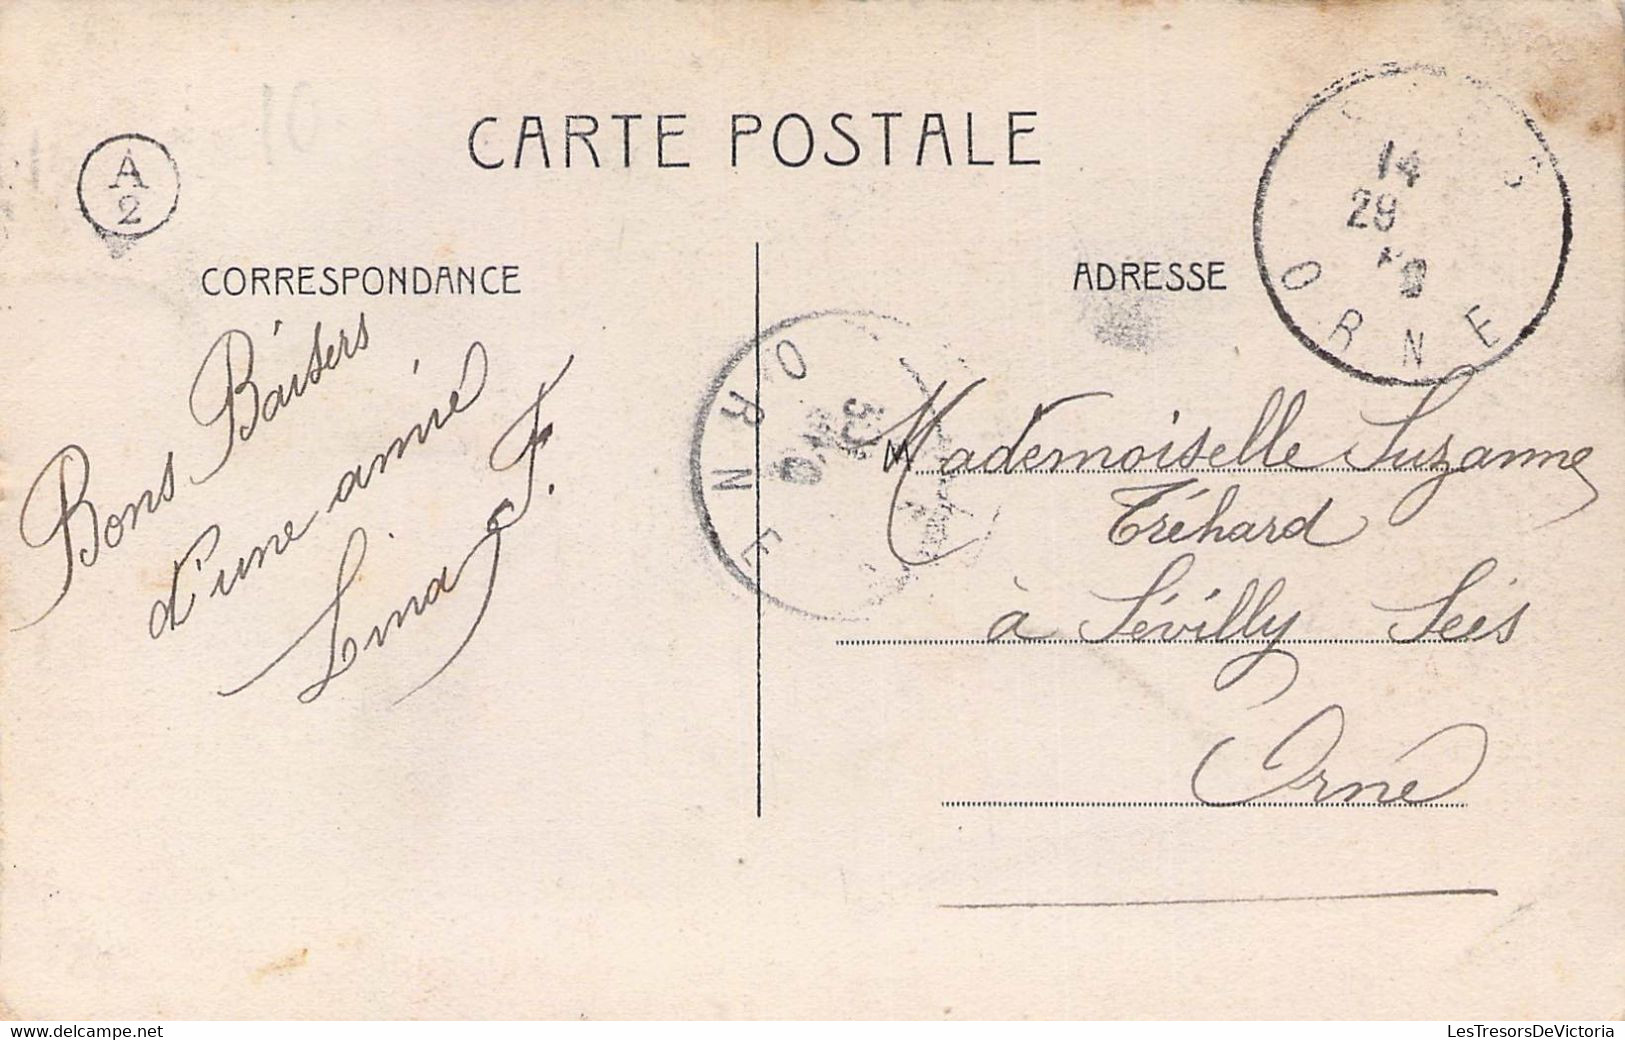 CARTE POSTALE
A
2
CORRESPONDANCE
ADRESSE
14
29
ORNE
Bons Baisers
d'une amie
Lina F.
ORNE
30
Mademoiselle Suzanne
Tréhard
à Sévilly Séés
Orne
delcampe.net
LesTresorsDeVictoria